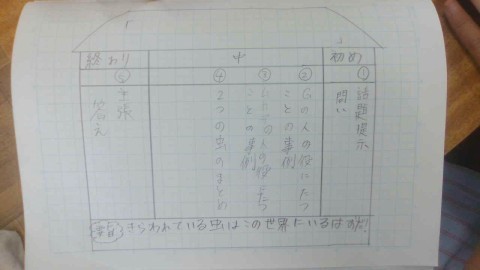 初め
中
終わり
①
②
③
④
⑤
話題提示
問い
Gの人の役にたつ
ことの事例
の人の役にたつ
ことの事例
2つの虫のまとめ
主張
答え
きらわれている虫はこの世界にいるはずだ!